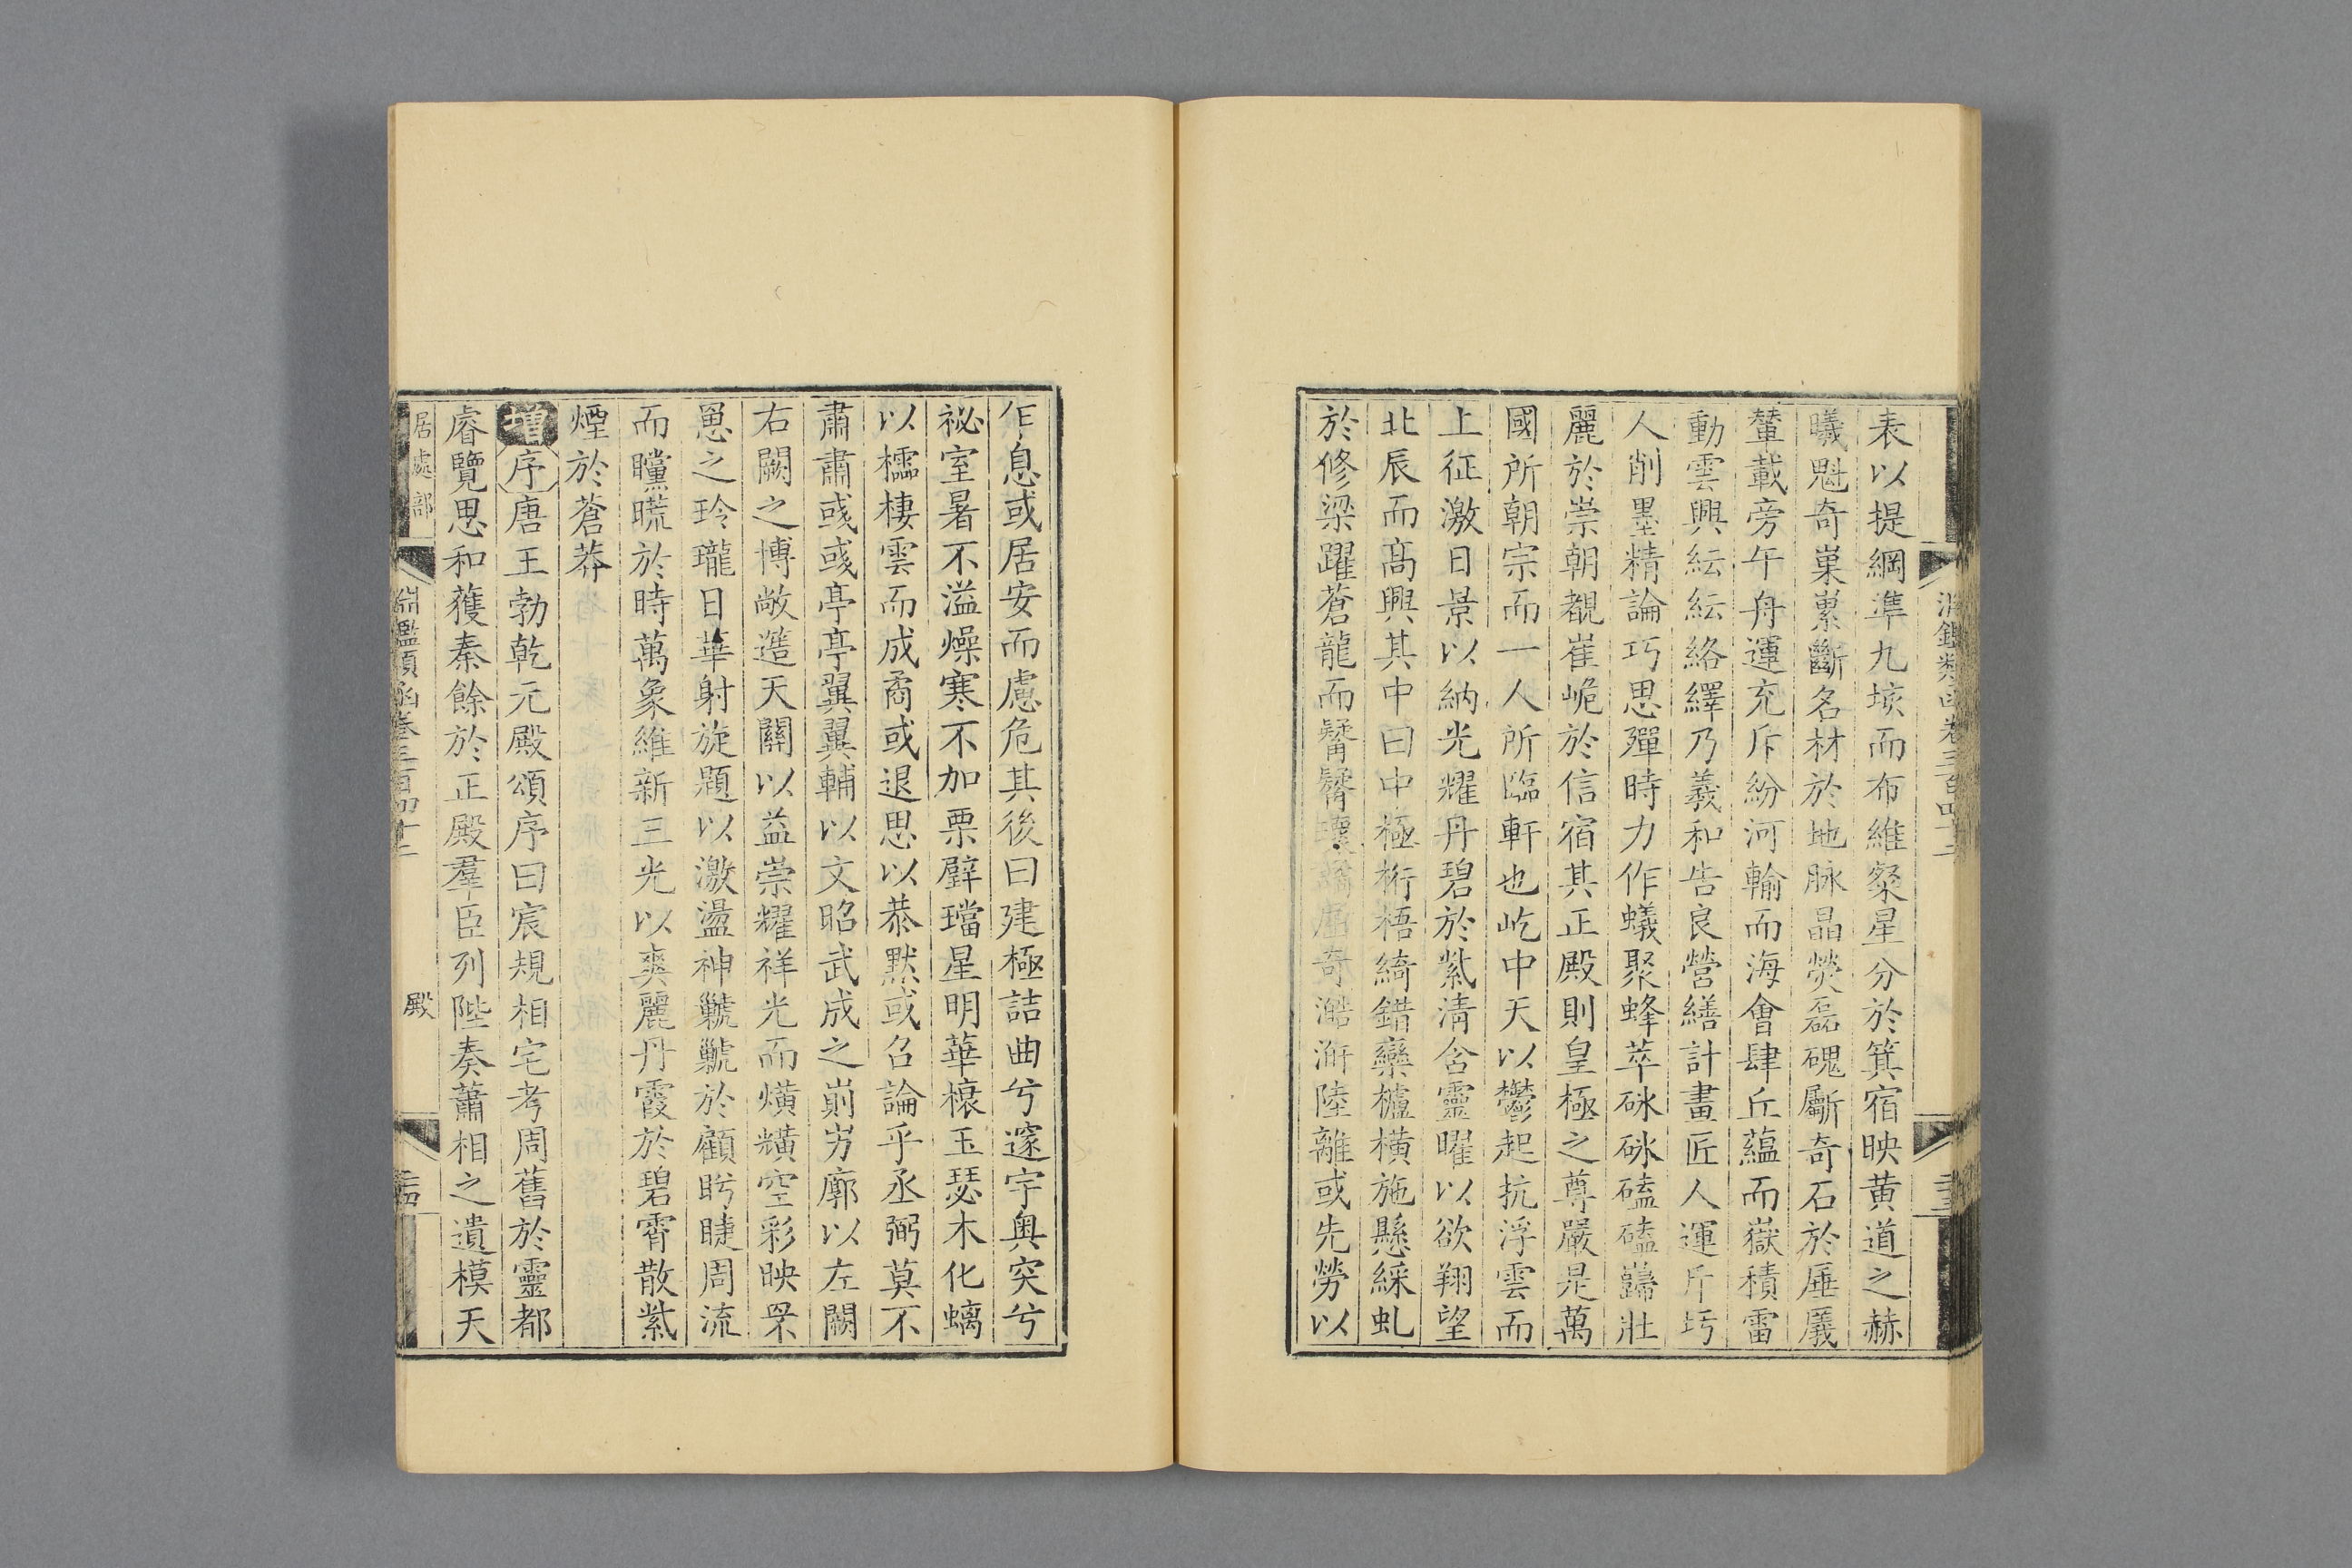 淵鑑類函卷三百四十二
三十三
表以提綱準九垓而布維粲星分於箕宿映黄道之赫
曦魁奇巢累斷名材於地脉晶熒磊磈斸奇石於厜㕒
輦載旁午舟運充斥紛河輸而海會肆丘蘊而嶽積雷
動雲興紜紜絡繹乃羲和告良營繕計畫匠人運斤圬
人削墨精論巧思殫時力作蟻聚蜂萃砯砯礚礚巋壯
麗於崇朝覩崔峗於信宿其正殿則皇極之尊嚴是萬
國所朝宗而一人所臨軒也屹中天以鬱起抗浮雲而
上征激日景以納光耀丹碧於紫清含靈曜以欲翔望
北辰而高興其中曰中極桁梧綺錯欒櫨橫施懸綵虬
於修梁躍蒼龍而鬐鬐瓌譎屈奇澔汗陸離或先勞以
乍息或居安而慮危其後曰建極詰曲兮邃宇奥突兮
祕室暑不溢燥寒不加栗璧璫星明華榱玉瑟木化螭
以櫺棲雲而成矞或退思以恭默或召論乎丞弼莫不
肅肅彧彧亭亭翼翼輔以文昭武成之崱屴廓以左闕
右闕之博敞造天關以益崇耀祥光而熿爌空彩映罘
罳之玲瓏日華射旋題以激盪神虪虪於顧眄睫周流
而矘㬻於時萬象維新三光以爽麗丹霞於碧霄散紫
煙於蒼莽
增序唐王勃乾元殿頌序曰宸規相宅考周舊於靈都
睿覽思和蒦秦餘於正殿羣臣列陛奏蕭相之遺模天
居處部
淵鑑類函卷三百四十二
殿
三十四